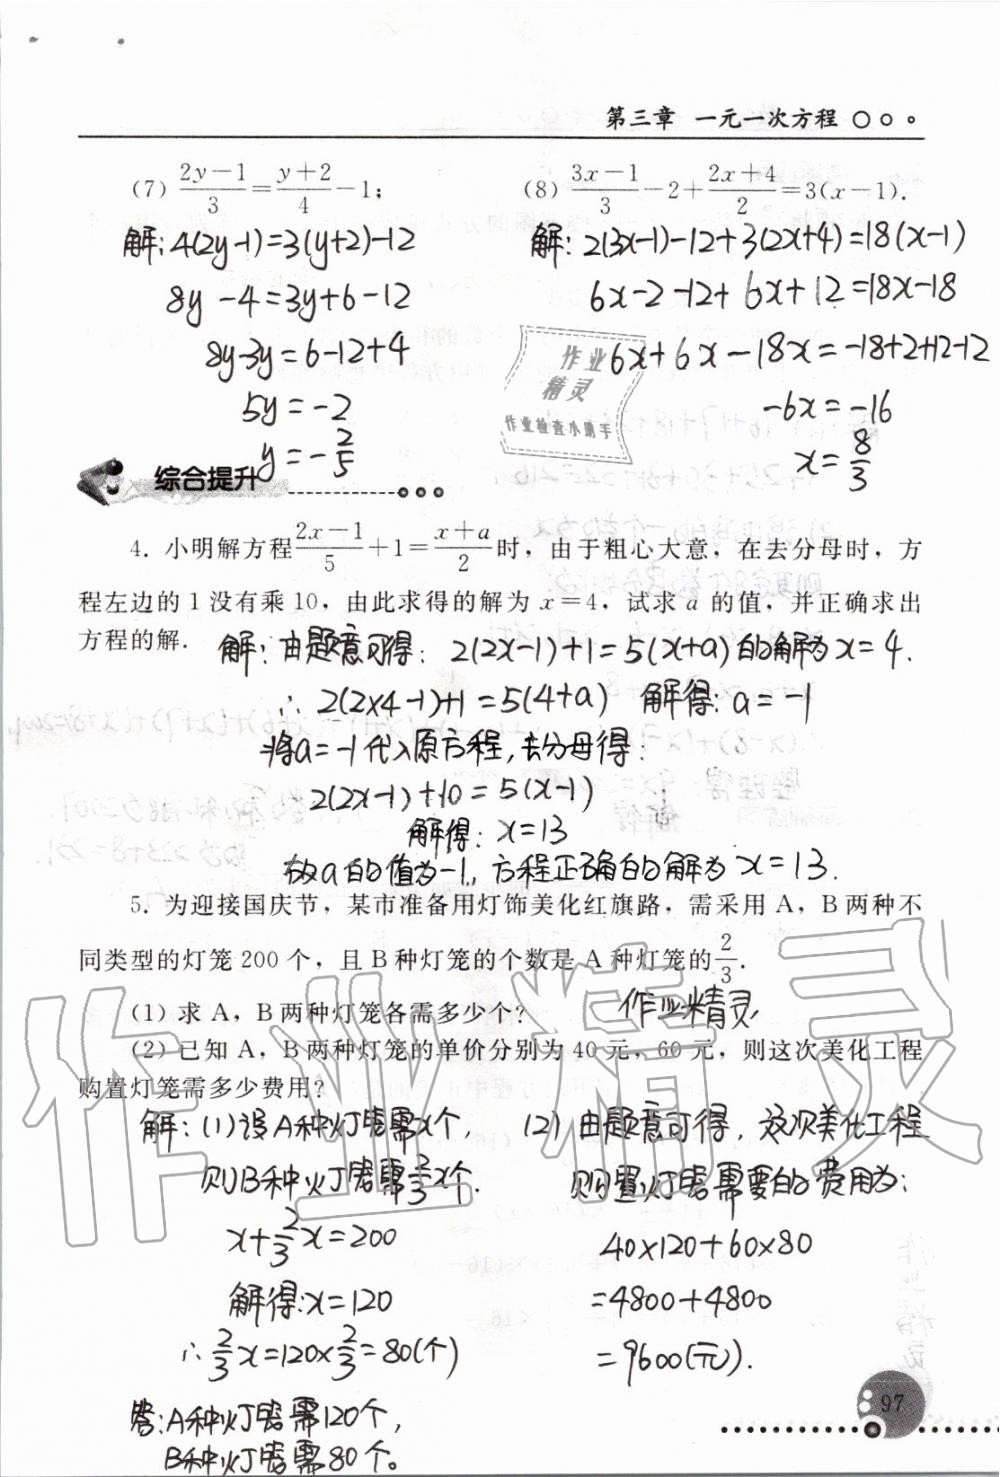 第三章 一元一次方程
(7) (2y-1)/3=(y+2)/4-1;
(8) (3x-1)/3-2+(2x+4)/2=3(x-1).
解:4(2y-1)=3(y+2)-12
8y-4=3y+6-12
8y-3y=6-12+4
5y=-2
y=-2/5
解:2(3x-1)-12+3(2x+4)=18(x-1)
6x-2-12+6x+12=18x-18
6x+6x-18x=-18+2+12-12
-6x=-16
x=8/3
作业
精灵
作业检查小助手
综合提升
4. 小明解方程(2x-1)/5+1=(x+a)/2时，由于粗心大意，在去分母时，方
程左边的1没有乘10，由此求得的解为x=4，试求a的值，并正确求出
方程的解.
解:由题意可得: 2(2x-1)+1=5(x+a)的解为x=4.
∴2(2×4-1)+1=5(4+a) 解得:a=-1
将a=-1代入原方程,去分母得:
2(2x-1)+10=5(x-1)
解得:x=13
故a的值为-1,方程正确的解为x=13.
5. 为迎接国庆节，某市准备用灯饰美化红旗路，需采用A，B两种不
同类型的灯笼200个，且B种灯笼的个数是A种灯笼的2/3.
(1) 求A，B两种灯笼各需多少个?
作业精灵
(2) 已知A，B两种灯笼的单价分别为40元，60元，则这次美化工程
购置灯笼需多少费用?
解:(1)设A种灯笼需x个,
则B种灯笼需2/3x个.
x+2/3x=200
解得:x=120
∴2/3x=120×2/3=80(个)
答:A种灯笼需120个,
B种灯笼需80个。
(2)由题意可得,这次美化工程
购置灯笼需要的费用为:
40×120+60×80
=4800+4800
=9600(元).
作业精灵
97